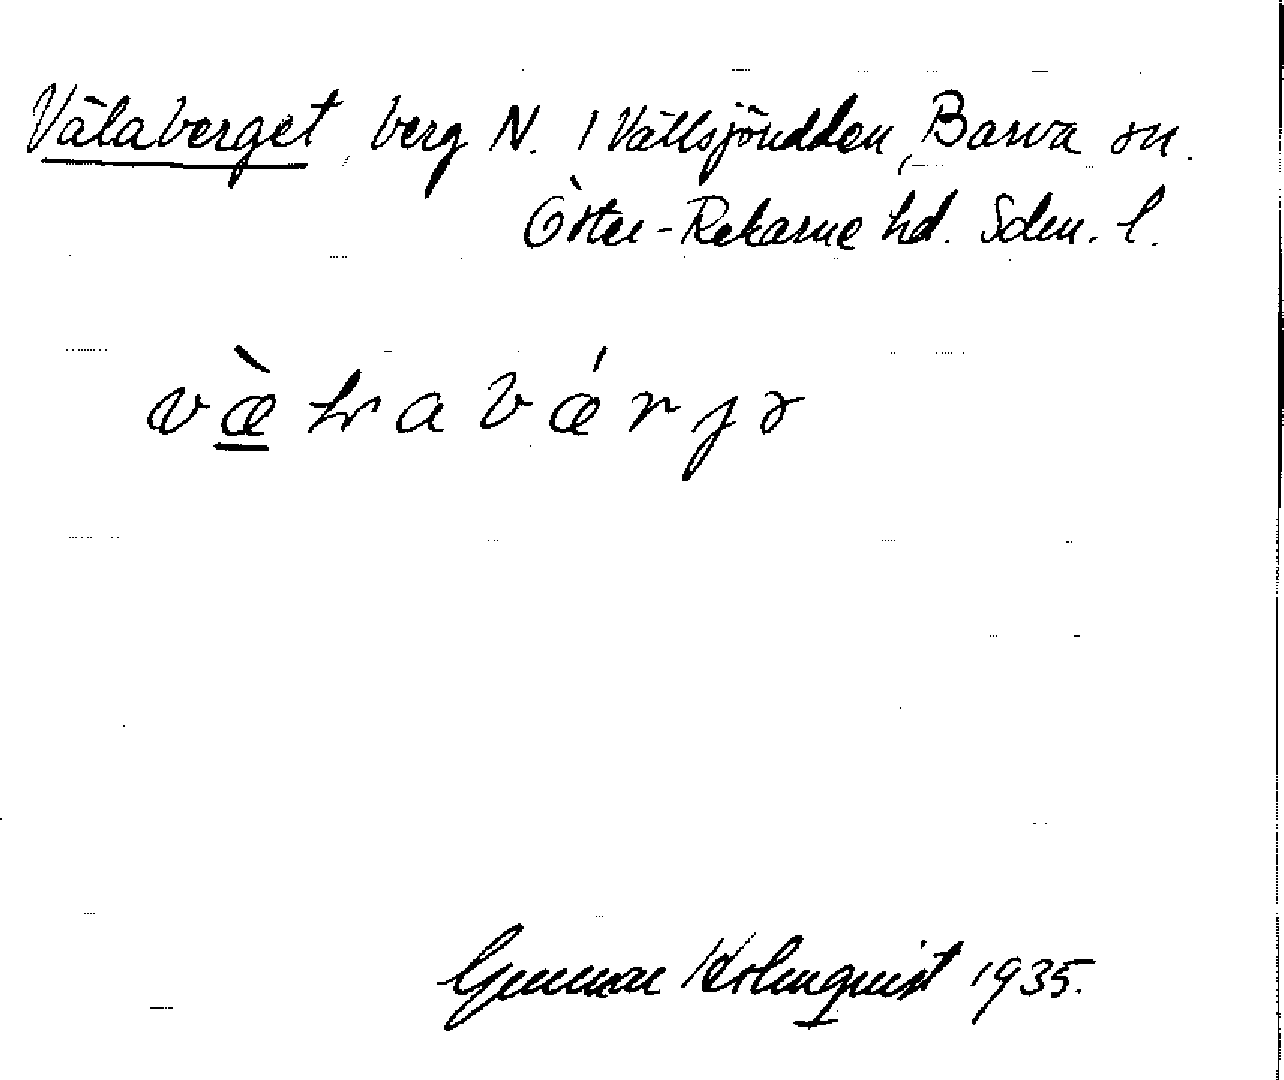 Välaberget, berg N. / Vällsjöudden, Barva sn.
Öster-Rekarne hd. Sdm. l.
væ̀lravǽrjə
Gunnar Holmquist 1935.